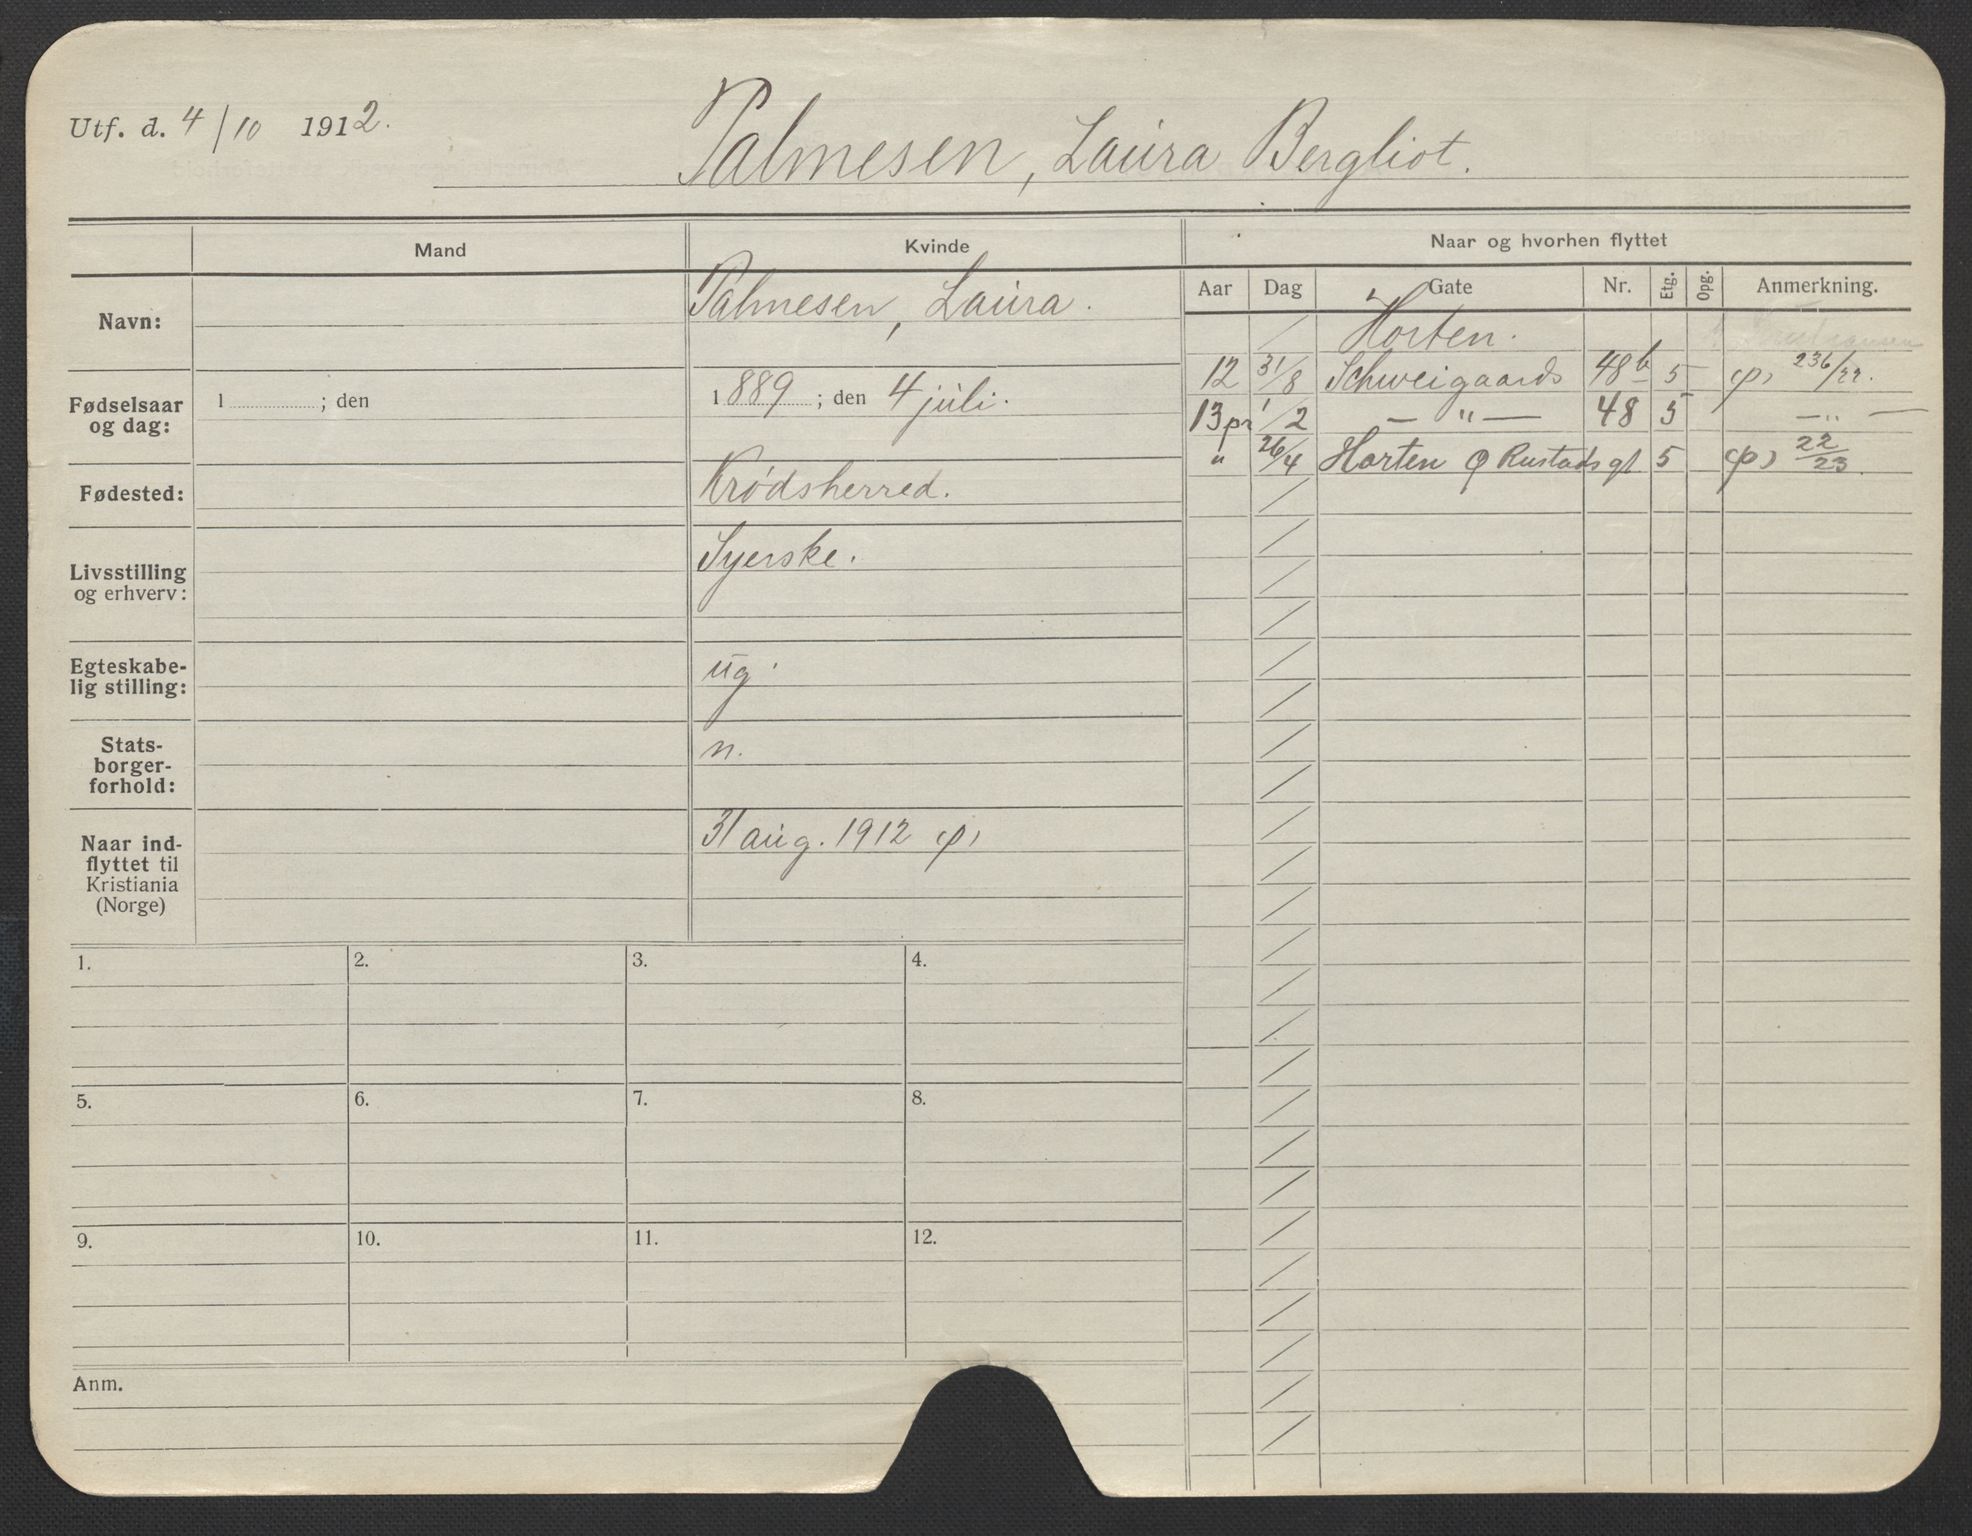 Utf. d. 4/10 1912.
Palmesen, Laura Bergliot.
Mand
Kvinde
Naar og hvorhen flyttet
Aar Dag Gate Nr. Etg. Opg. Anmerkning.
Navn:
Palmesen, Laura.
Fødselsaar og dag:
1 ; den
1889 ; den 4 juli.
Fødested:
Krødsherred.
Livsstilling og erhverv:
Syerske.
Egteskabe-
lig stilling:
ug.
Stats-
borger-
forhold:
n.
Naar ind-
flyttet til
Kristiania
(Norge)
31 aug. 1912 (p)
Horten.
12 31/8 Schweigaards 48b 5 (p) 236/22.
13 pr 1/2 — " — 48 5 — " —
" 26/4 Horten Rustads gt 5 (p) 22/23.
1. 2. 3. 4.
5. 6. 7. 8.
9. 10. 11. 12.
Anm.